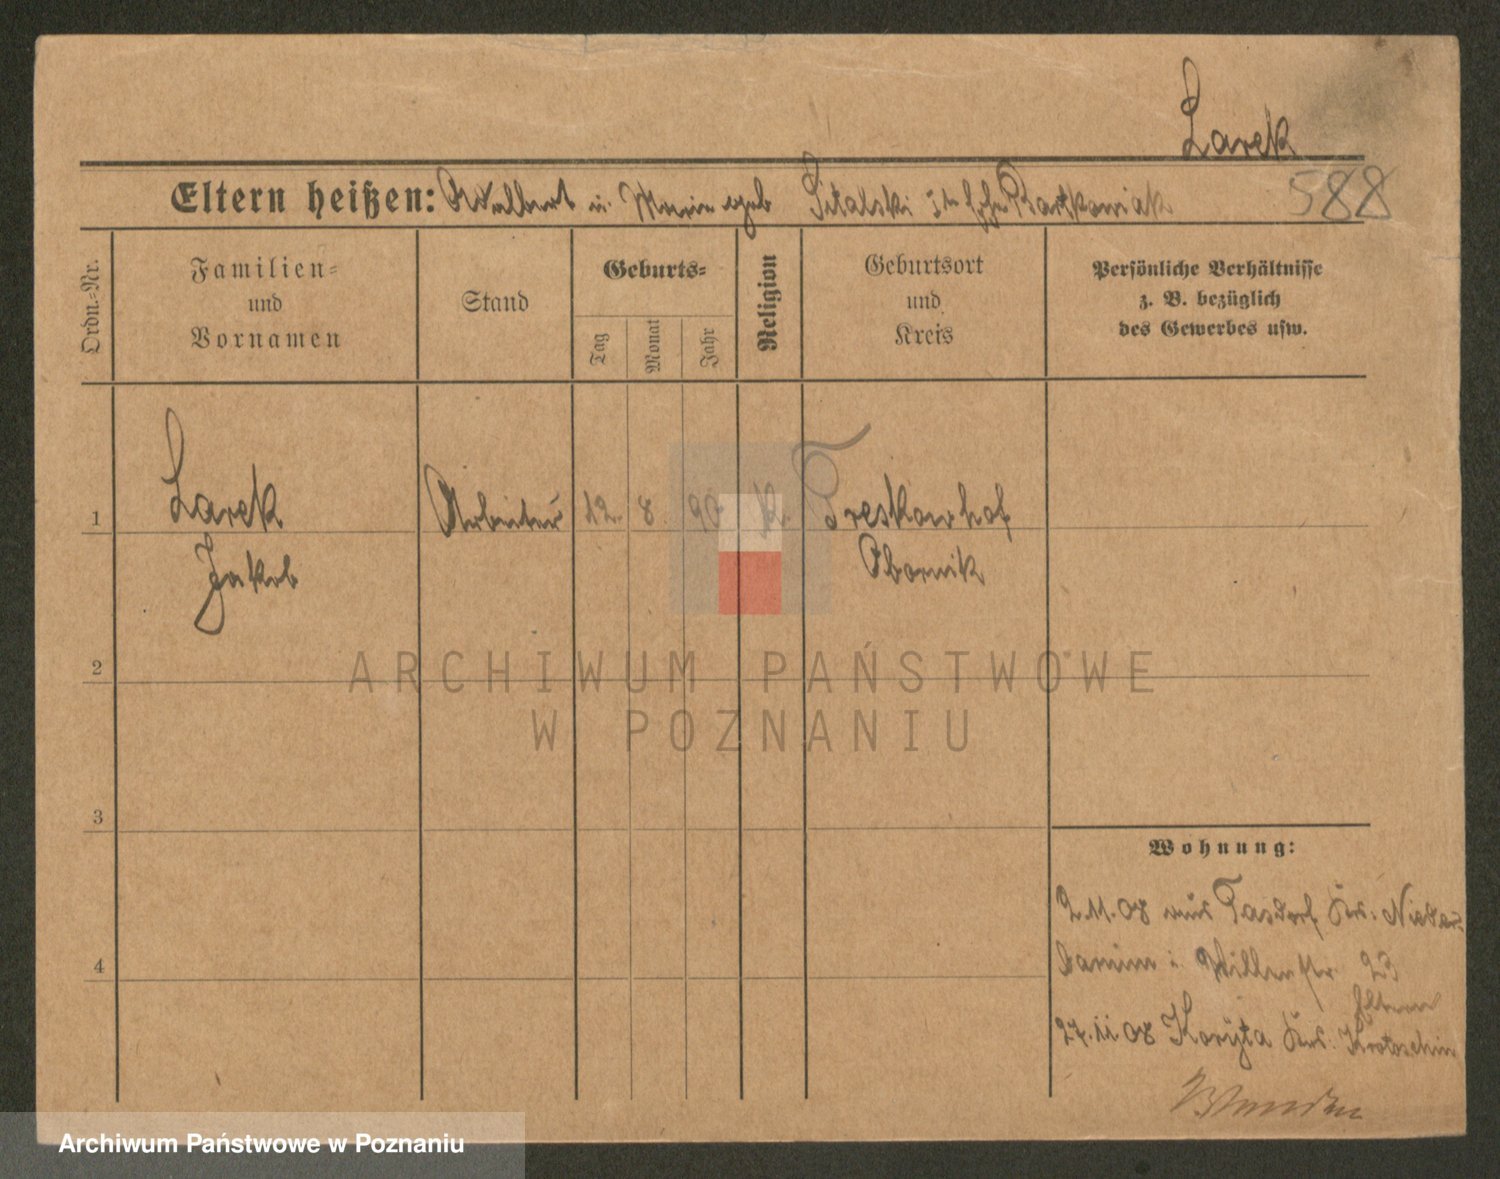 Larek
Eltern heißen: Adalbert u. Marie geb Sitalski Ratkowiak
588
Ordn.-Nr.
Familien-
und
Vornamen
Stand
Geburts-
Tag
Monat
Jahr
Religion
Geburtsort
und
Kreis
Persönliche Verhältnisse
z. B. bezüglich
des Gewerbes usw.
1
Larek
Jakob
Arbeiter
12. 8 90 k.
Treskowhof
Obornik
2
3
4
Wohnung:
2.11.08 aus Tasdorf Krs. Nieder-
barnim i. 23
Eltern
27.11 08 Koryta Krs. Krotoschin
ARCHIWUM PAŃSTWOWE
W POZNANIU
Archiwum Państwowe w Poznaniu